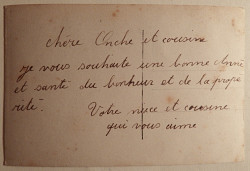 chère Onche et cousine
je vous souhaite une bonne année
et santé du bonheur et de la prope
rité.
Votre niece et cousine
qui vous aime